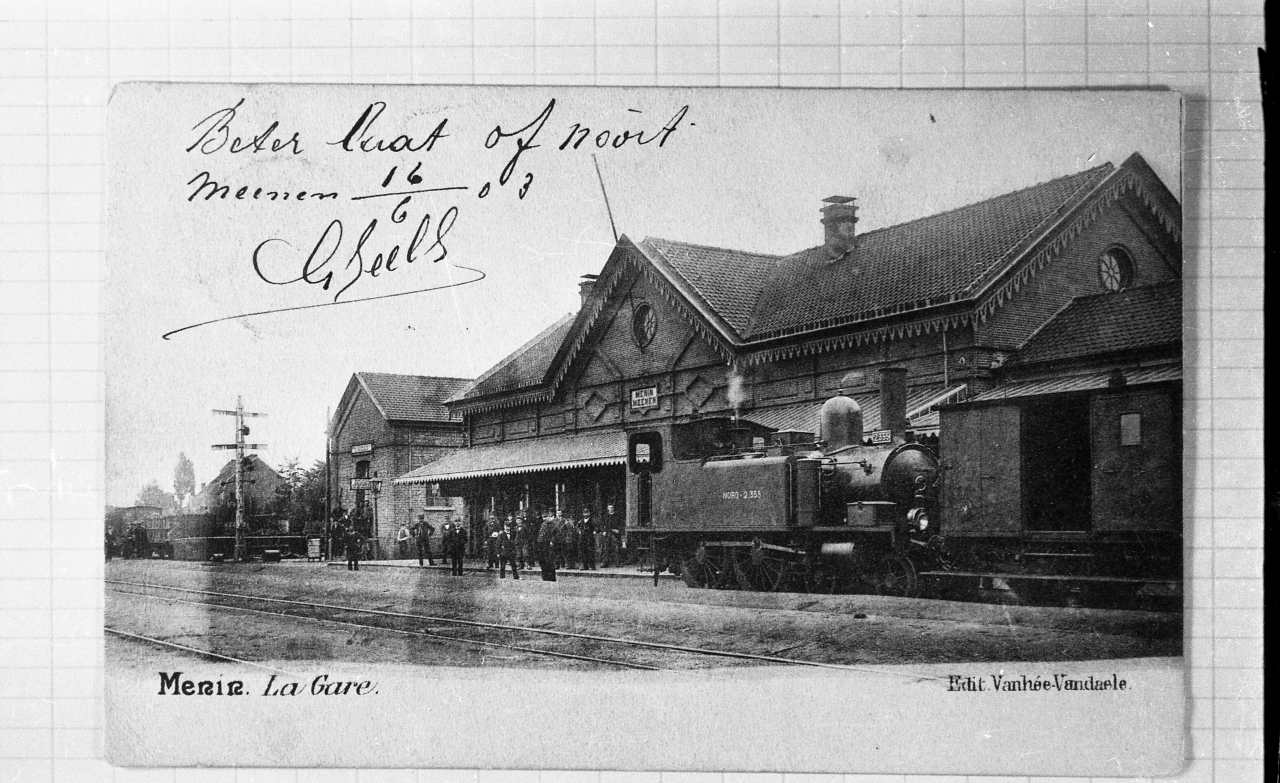 Beter laat of nooit
Meenen 16/6 03
Gheels
MENIN
MEENEN
2355
NORD - 2.355
Menin. La Gare.
Edit. Vanhée-Vandaele.